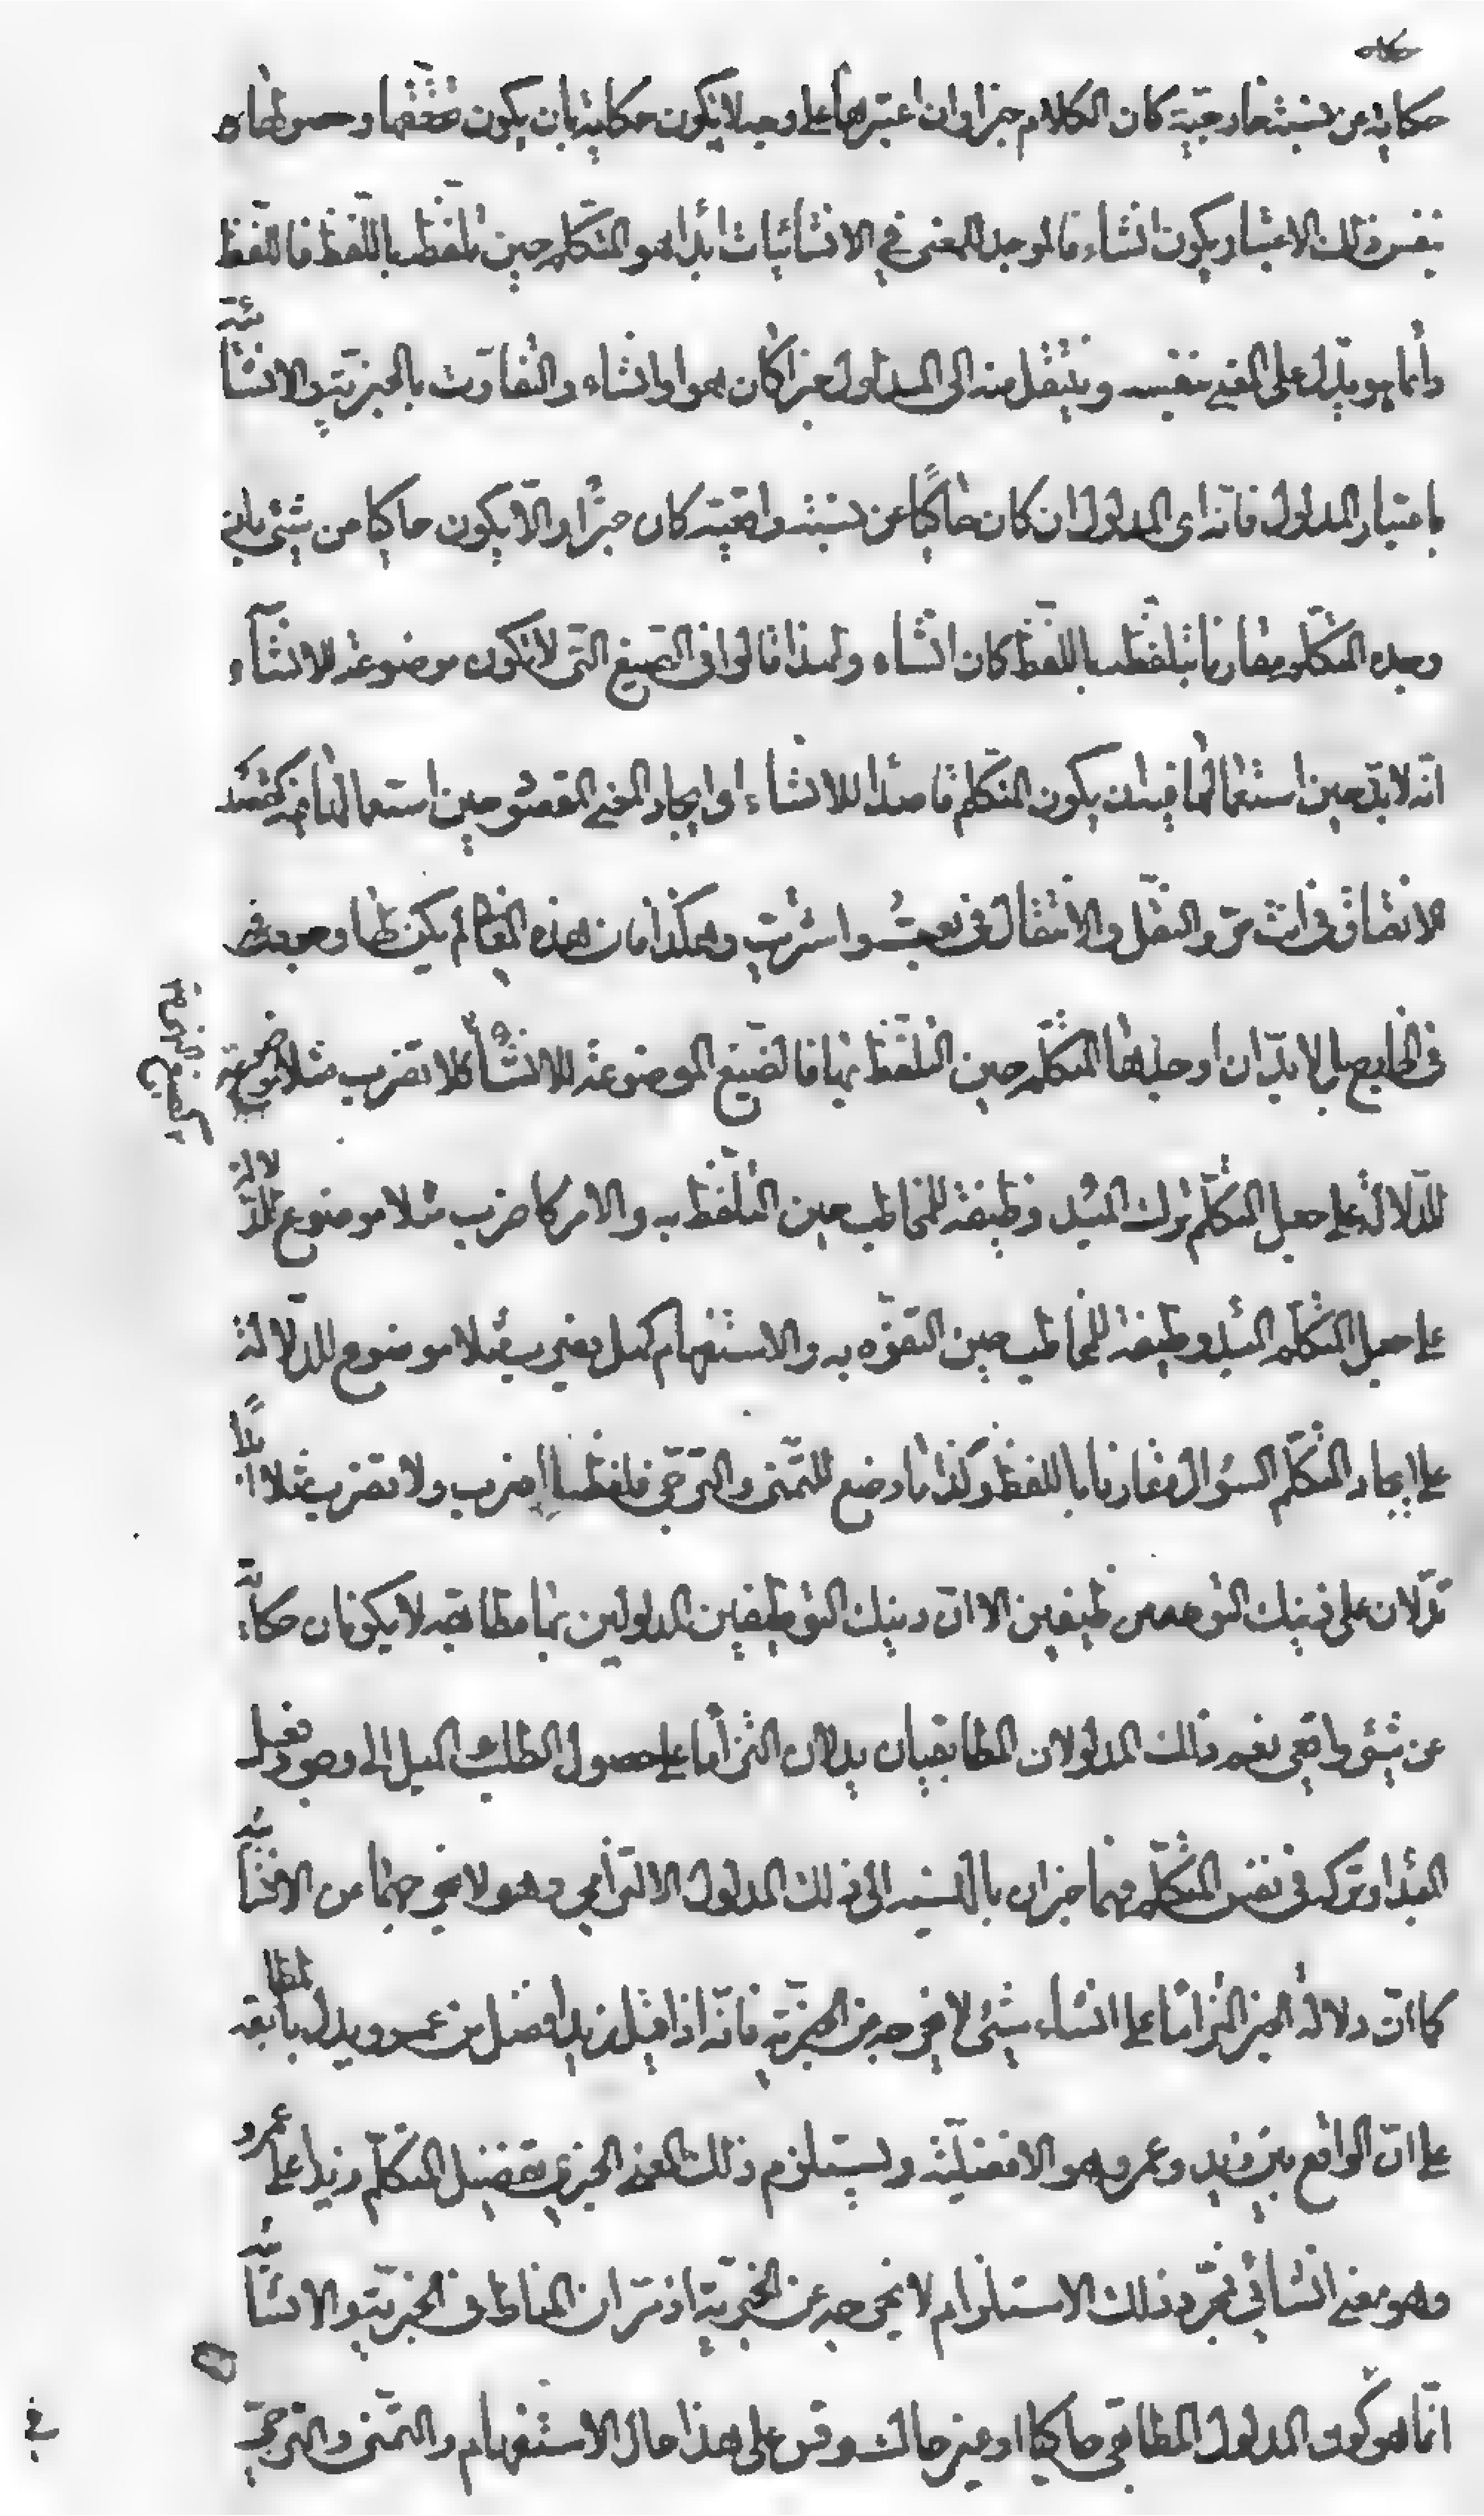 حكاية عن نسبة خارجية كان الكلام خبرا وان اعتبرها على وجه لا يكون حكاية بان يكون تحققها وحصولها
بنفس ذلك الاعتبار يكون انشاء فالموجد للمعنى في الانشائيات ابدا هو المتكلم حين تلفظه باللفظ فاللفظ
دائما هو يدل على المعنى بنفسه وينتقل منه الى المدلول خبرا كان هو او انشاء والتفاوت بالخبرية والانشائية
باعتبار المدلول فانه اى المدلول ان كان حاكيا عن نسبة واقعية كان خبرا والا يكون حاكيا من شيئ بان
وجده المتكلم مقارنا بتلفظه باللفظ كان انشاء ولهذا قالوا فى الصيغ التى لا تكون موضوعة للانشاء
انه لا بد حين استعمالها فيه ان يكون المتكلم قاصدا للانشاء وايجاد المعنى المقصود حين استعمالها فيه كقصد
الانعتاق فى انت حر والنقل والانتقال فى بعت واشتريت وهكذا فان هذه المفاهيم لم يكن لها وجود
فى الخارج بل لا بد ان اوجدها المتكلم حين التلفظ بها فالصيغ الموضوعة للانشاء كلا تضرب مثلا موضوعة
للدلالة على جعل المتكلم ترك المبدء وظيفة للمخاطب حين التلفظ به والامر كاضرب مثلا موضوع للدلالة
على جعل المتكلم المبدء وظيفة للمخاطب حين التفوه به والاستفهام كهل يضرب مثلا موضوع للدلالة
على ايجاد المتكلم السؤال مقارنا باللفظ وكذا ما وضع للتمنى والترجى فلفظا اضرب ولا تضرب مثلا ابدا
تدلان على ذينك التوظيفين الا ان ذينك التوظيفين المدلولين بهما مطابقة لا يكونان حكاية
عن شيئ واقعى نعم ذلك المدلولان المطابقيان يدلان التزاما على حصول الطلب والميل الى وجود فعل
المبدء او تركه فى نفس المتكلم فهما خبران بالنسبة الى ذلك المدلول الالتزامى وهو لا يخرجهما من الانشائية
كما ان دلالة الخبر التزاما على انشاء شيئ لا يخرجه عن الخبرية فانه اذا قيل زيد افضل من عمرو يدل بالمطابقة
على ان الواقع بين زيد وعمرو هو الافضلية ويستلزم ذلك المعنى الخبرى تفضيل المتكلم زيدا على عمرو
وهو معنى انشائى فمجرد ذلك الاستلزام لا يخرجه عن الخبرية اذ المناط فى الخبرية والانشائية
انما هو كون المدلول المطابقى حاكيا او غير حاك وقس على هذا حال الاستفهام والتمنى والترجى
فى